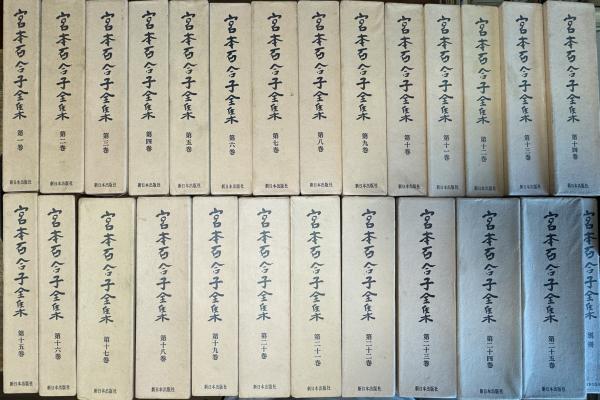 宮本百合子全集 第一巻 新日本出版社
宮本百合子全集 第二巻 新日本出版社
宮本百合子全集 第三巻 新日本出版社
宮本百合子全集 第四巻 新日本出版社
宮本百合子全集 第五巻 新日本出版社
宮本百合子全集 第六巻 新日本出版社
宮本百合子全集 第七巻 新日本出版社
宮本百合子全集 第八巻 新日本出版社
宮本百合子全集 第九巻 新日本出版社
宮本百合子全集 第十巻 新日本出版社
宮本百合子全集 第十一巻 新日本出版社
宮本百合子全集 第十二巻 新日本出版社
宮本百合子全集 第十三巻 新日本出版社
宮本百合子全集 第十四巻 新日本出版社
宮本百合子全集 第十五巻 新日本出版社
宮本百合子全集 第十六巻 新日本出版社
宮本百合子全集 第十七巻 新日本出版社
宮本百合子全集 第十八巻 新日本出版社
宮本百合子全集 第十九巻 新日本出版社
宮本百合子全集 第二十巻 新日本出版社
宮本百合子全集 第二十一巻 新日本出版社
宮本百合子全集 第二十二巻 新日本出版社
宮本百合子全集 第二十三巻 新日本出版社
宮本百合子全集 第二十四巻 新日本出版社
宮本百合子全集 第二十五巻 新日本出版社
宮本百合子全集 別冊